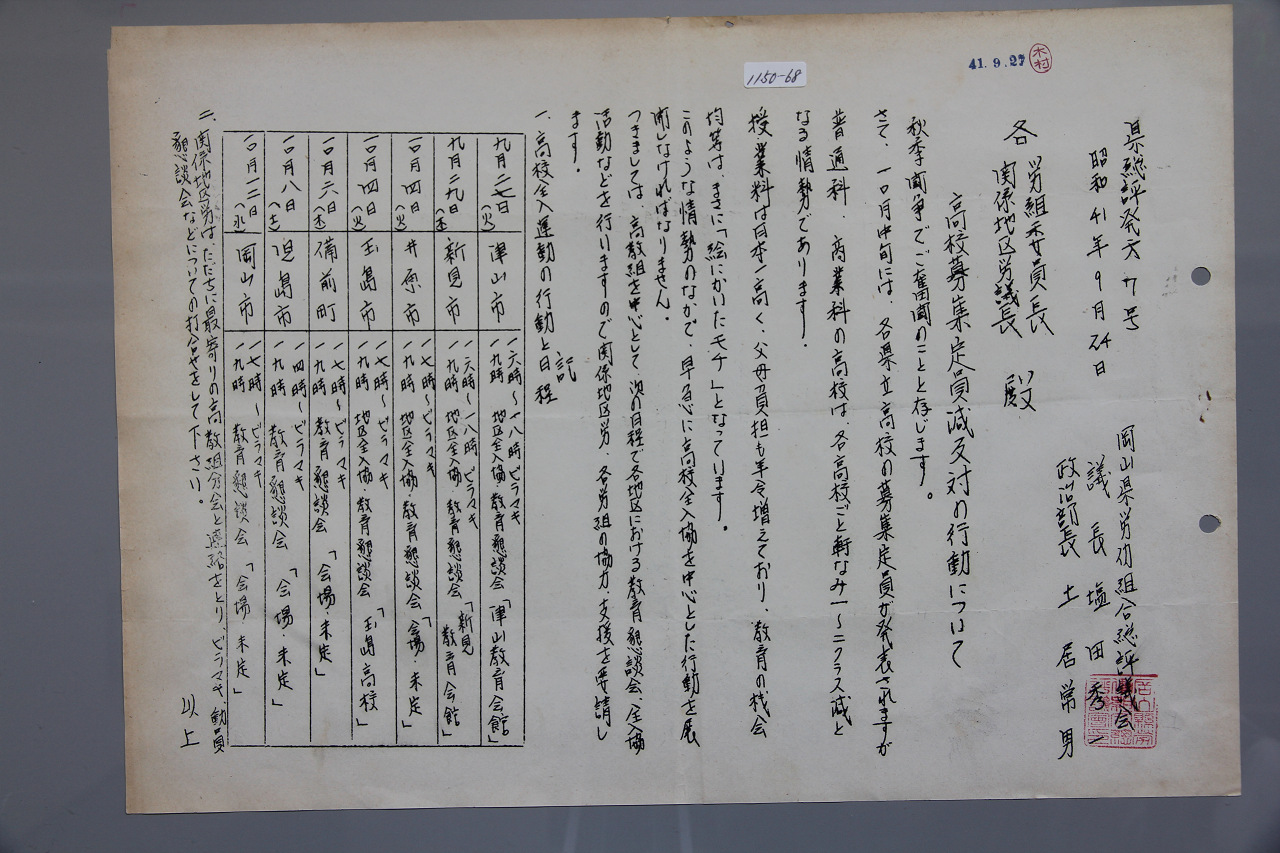 41.9.27
木村
1150-68
県総評発六十号
昭和41年9月24日
岡山県労仂組合総評議会
議長 塩田秀一
政治部長 土居常男
各 労組委員長
関係地区労議長 殿
高校募集定員減反対の行動について
秋季闘争でご奮闘のことと存じます。
さて、一〇月中旬には、各県立高校の募集定員が発表されますが
普通科、商業科の高校は、各高校ごと軒なみ一～二クラス減と
なる情勢であります。
授業料は日本一高く、父母負担も年令増えており、教育の機会
均等は、まさに「絵にかいたモチ」となっています。
このような情勢のなかで、早急に高校全入協を中心とした行動を展
開しなければなりません。
つきましては、高教組を中心として、次の日程で各地区における教育懇談会、全入協
活動などを行いますので関係地区労、各労組の協力、支援を要請し
ます。
記
一、高校全入運動の行動と日程
九月二七日(火) 津山市 一六時～一八時 ビラマキ
一九時 地区全入協・教育懇談会「津山教育会館」
九月二九日(木) 新見市 一六時～一八時 ビラマキ
一九時 地区全入協・教育懇談会「新見教育会館」
一〇月四日(火) 井原市 一七時～ビラマキ
一九時 地区全入協・教育懇談会「会場・未定」
一〇月四日(火) 玉島市 一七時～ビラマキ
一九時 地区全入協・教育懇談会「玉島高校」
一〇月六日(木) 備前町 一七時～ビラマキ
一九時 教育懇談会「会場・未定」
一〇月八日(土) 児島市 一四時～ビラマキ
一九時 教育懇談会「会場・未定」
一〇月一二日(水) 岡山市 一七時～ビラマキ
一九時 教育懇談会「会場 未定」
二、関係地区労は、ただちに最寄りの高教組分会と連絡をとり、ビラマキ、動員
懇談会などについての打合せをして下さい。
以上